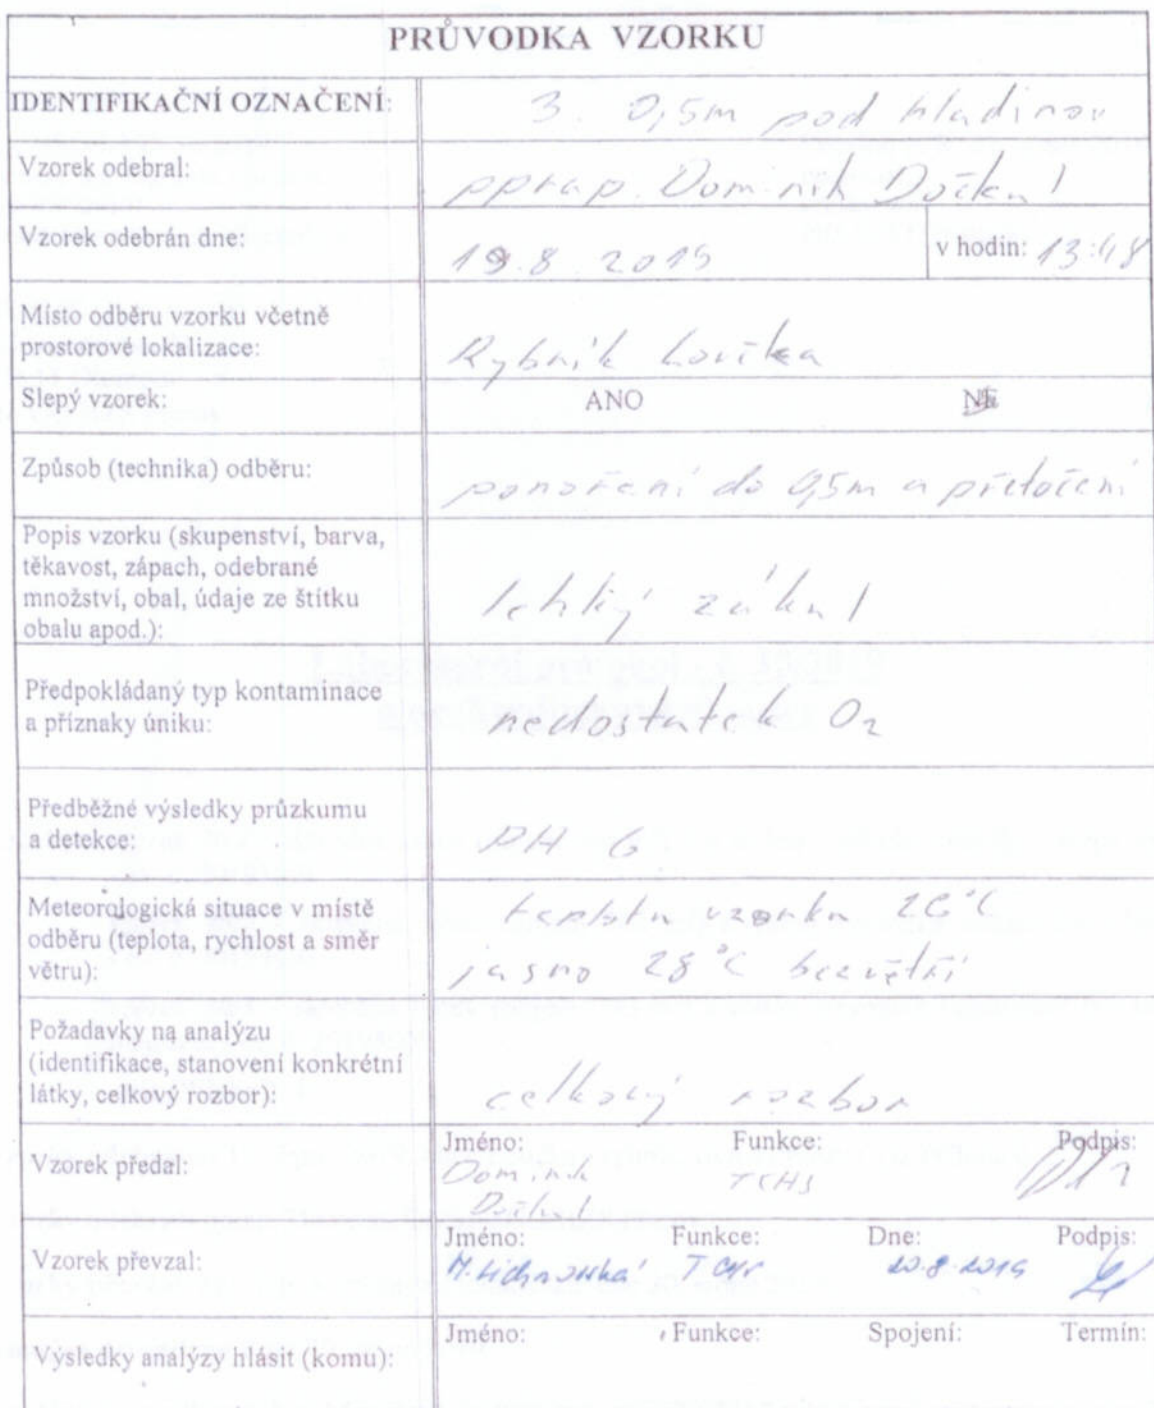 PRŮVODKA VZORKU
IDENTIFIKAČNÍ OZNAČENÍ: 3. 0,5m pod hladinou
Vzorek odebral: pprap. Dominik
Vzorek odebrán dne: 19.8.2019 v hodin: 13:48
Místo odběru vzorku včetně
prostorové lokalizace: Rybník Lovička
Slepý vzorek: ANO NE
Způsob (technika) odběru: ponoření do 0,5m a přetočení
Popis vzorku (skupenství, barva,
těkavost, zápach, odebrané
množství, obal, údaje ze štítku
obalu apod.): lehký zákal
Předpokládaný typ kontaminace
a příznaky úniku: nedostatek O2
Předběžné výsledky průzkumu
a detekce: PH 6
Meteorologická situace v místě teplota vzorku 26°C
odběru (teplota, rychlost a směr
větru): jasno 28°C bezvětří
Požadavky na analýzu
(identifikace, stanovení konkrétní
látky, celkový rozbor): celkový rozbor
Vzorek předal: Jméno: Funkce: Podpis:
Dominik TCHS
Vzorek převzal: Jméno: Funkce: Dne: Podpis:
20.8.2019
Výsledky analýzy hlásit (komu): Jméno: Funkce: Spojení: Termín: